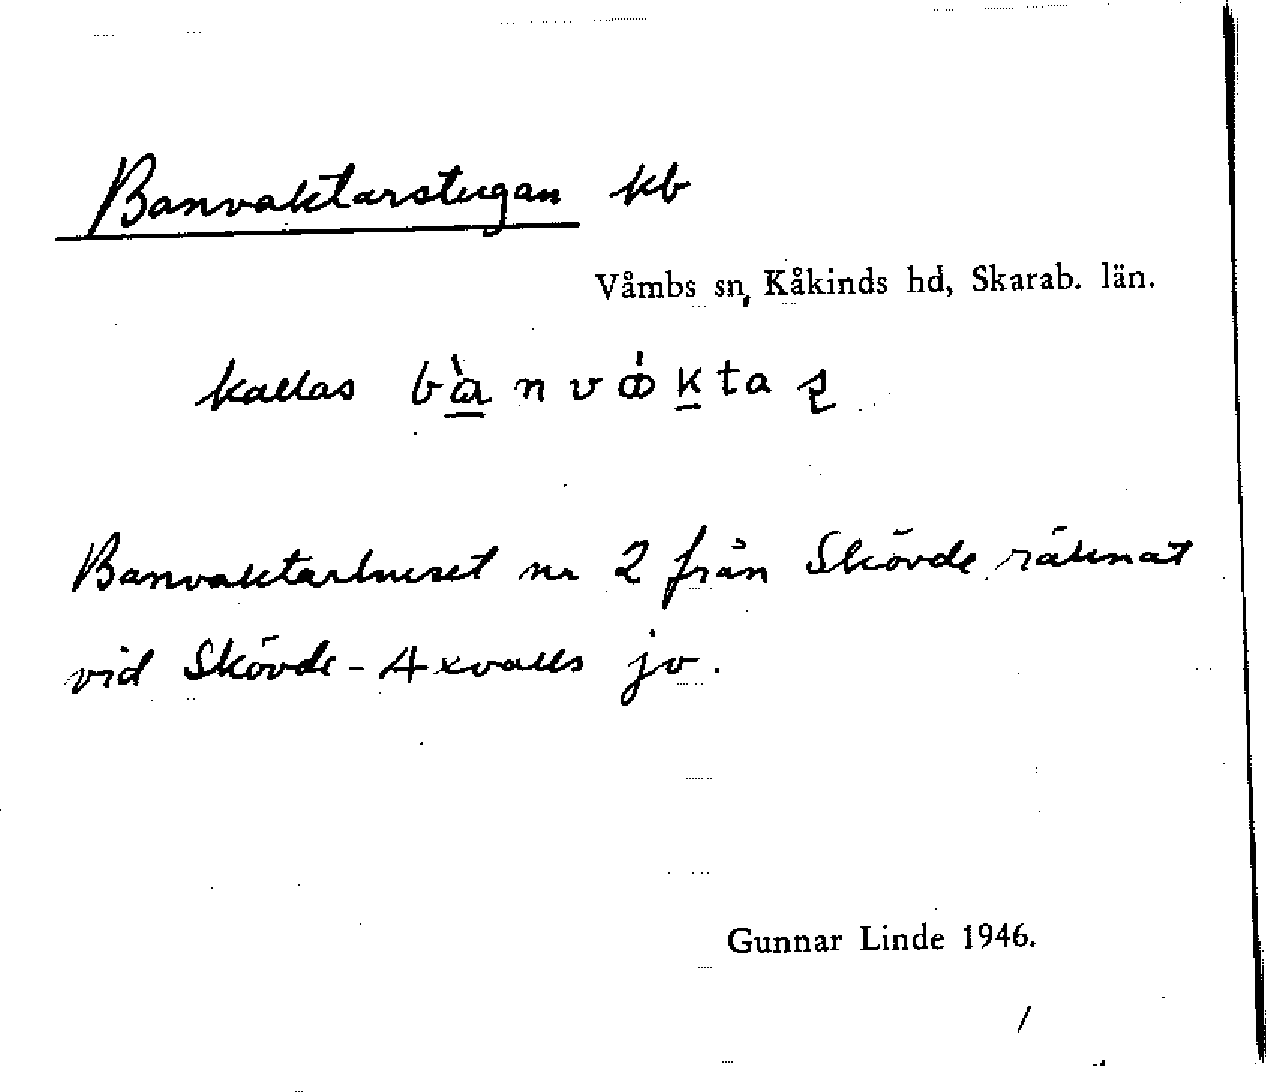 Banvaktarstugan kb
Våmbs sn, Kåkinds hd, Skarab. län.
kallas
Banvaktarhuset nr 2 från Skövde räknat
vid Skövde-Axvalls jv.
Gunnar Linde 1946.
/